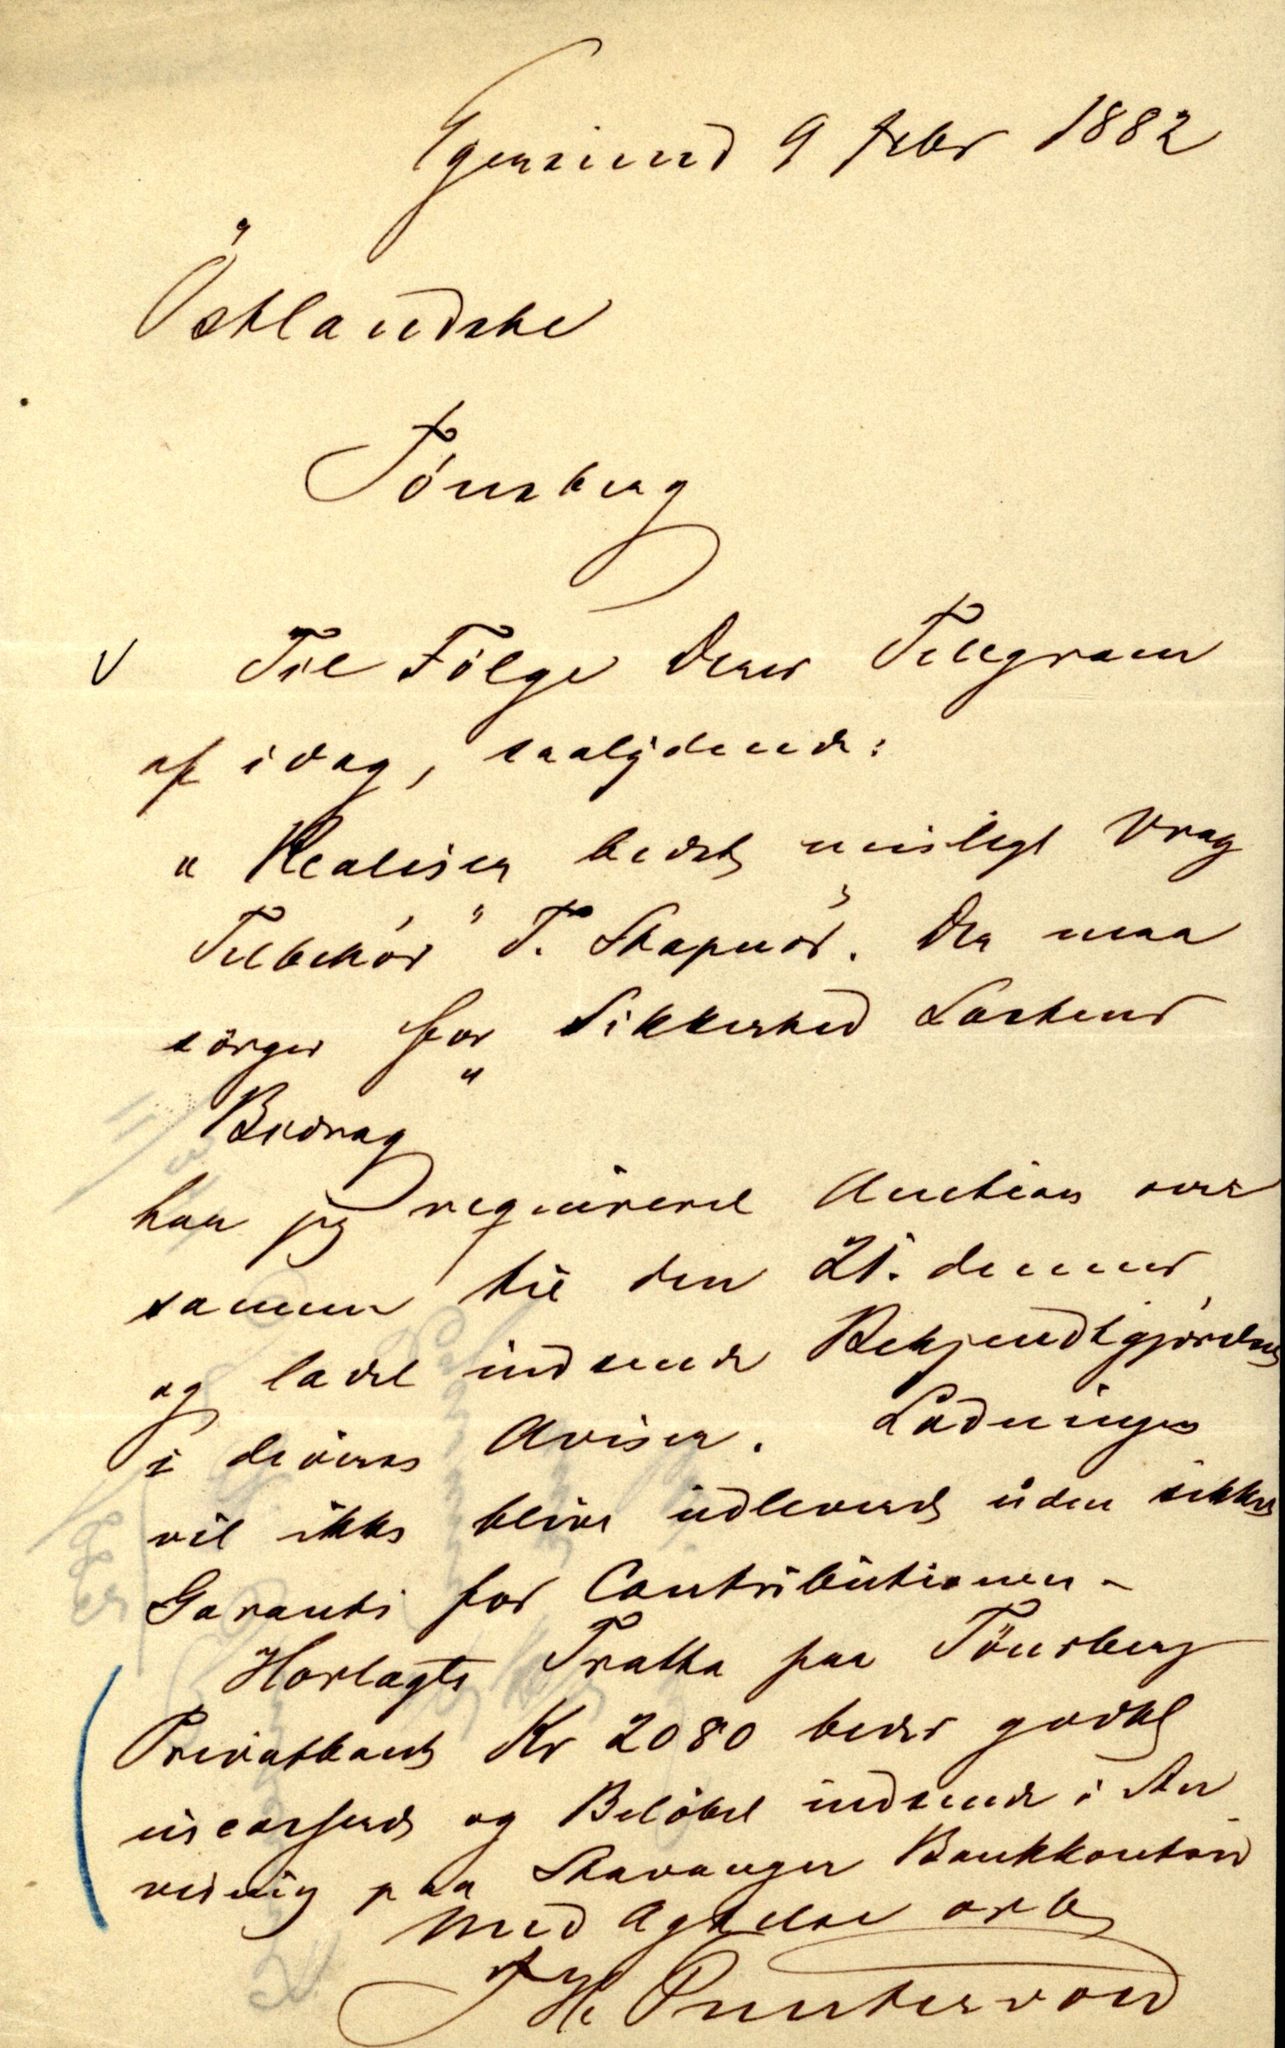 Egersund 9 febr 1882
Östlandske
Tönsberg
Til Fölge Deres Telegram
af idag, saalydende:
"Realiser bedst muligt Vrag
Tilbehör" T. Skapnör. De maa
sörge for Sikkerhed Lastens
Bidrag"
har jeg requireret Auction over
samme til den 21. dennes
og ladet indsende Bekjendtgjörelse
i diverse Aviser. Ladningen
vil ikke blive udleveret uden sikker
Garanti for Contributionen -
Hoslagte Tratta paa Tönsberg
Privatbank Kr 2080 bedes godtd
incasseret og Belöbet indsendt i An
visning paa Stavanger Bankkontor
Med Agtelse ærb
T H Puntervold